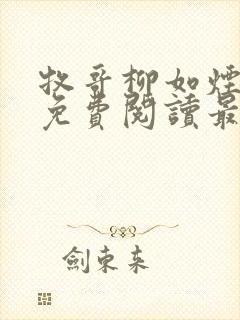 牧哥柳如煙
免費閱讀最
劍東来